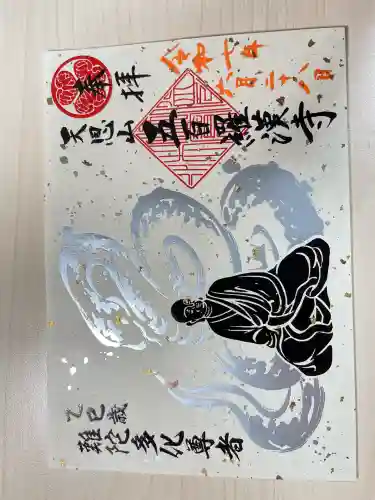 奉拝
令和七年
六月二十八日
天恩山 五百羅漢寺
乙巳歳
難陀多化尊者